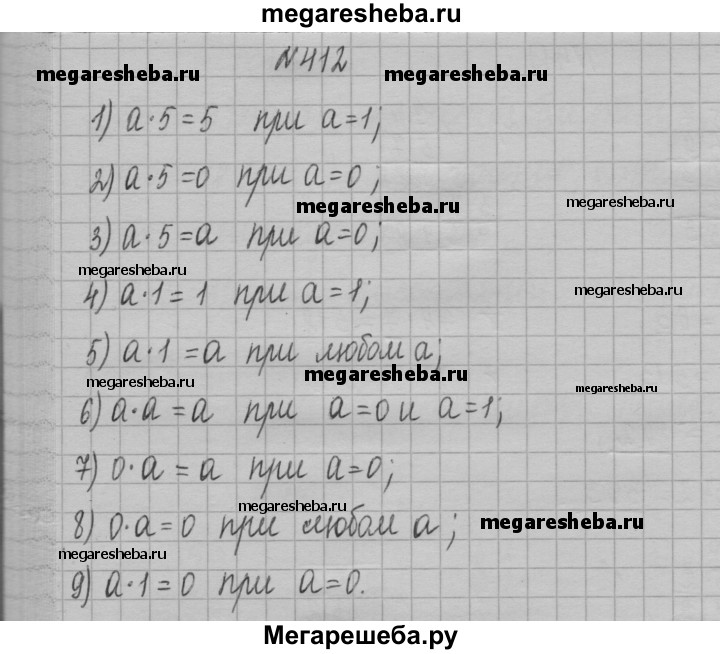 megaresheba.ru
№412
megaresheba.ru megaresheba.ru
1) a·5=5 при a=1;
2) a·5=0 при a=0;
megaresheba.ru megaresheba.ru
3) a·5=a при a=0;
megaresheba.ru
4) a·1=1 при a=1;
megaresheba.ru
5) a·1=a при любом a;
megaresheba.ru megaresheba.ru megaresheba.ru
6) a·a=a при a=0 и a=1;
7) 0·a=a при a=0;
megaresheba.ru
8) 0·a=0 при любом a;
megaresheba.ru
megaresheba.ru
9) a·1=0 при a=0.
Мегарешеба.ру